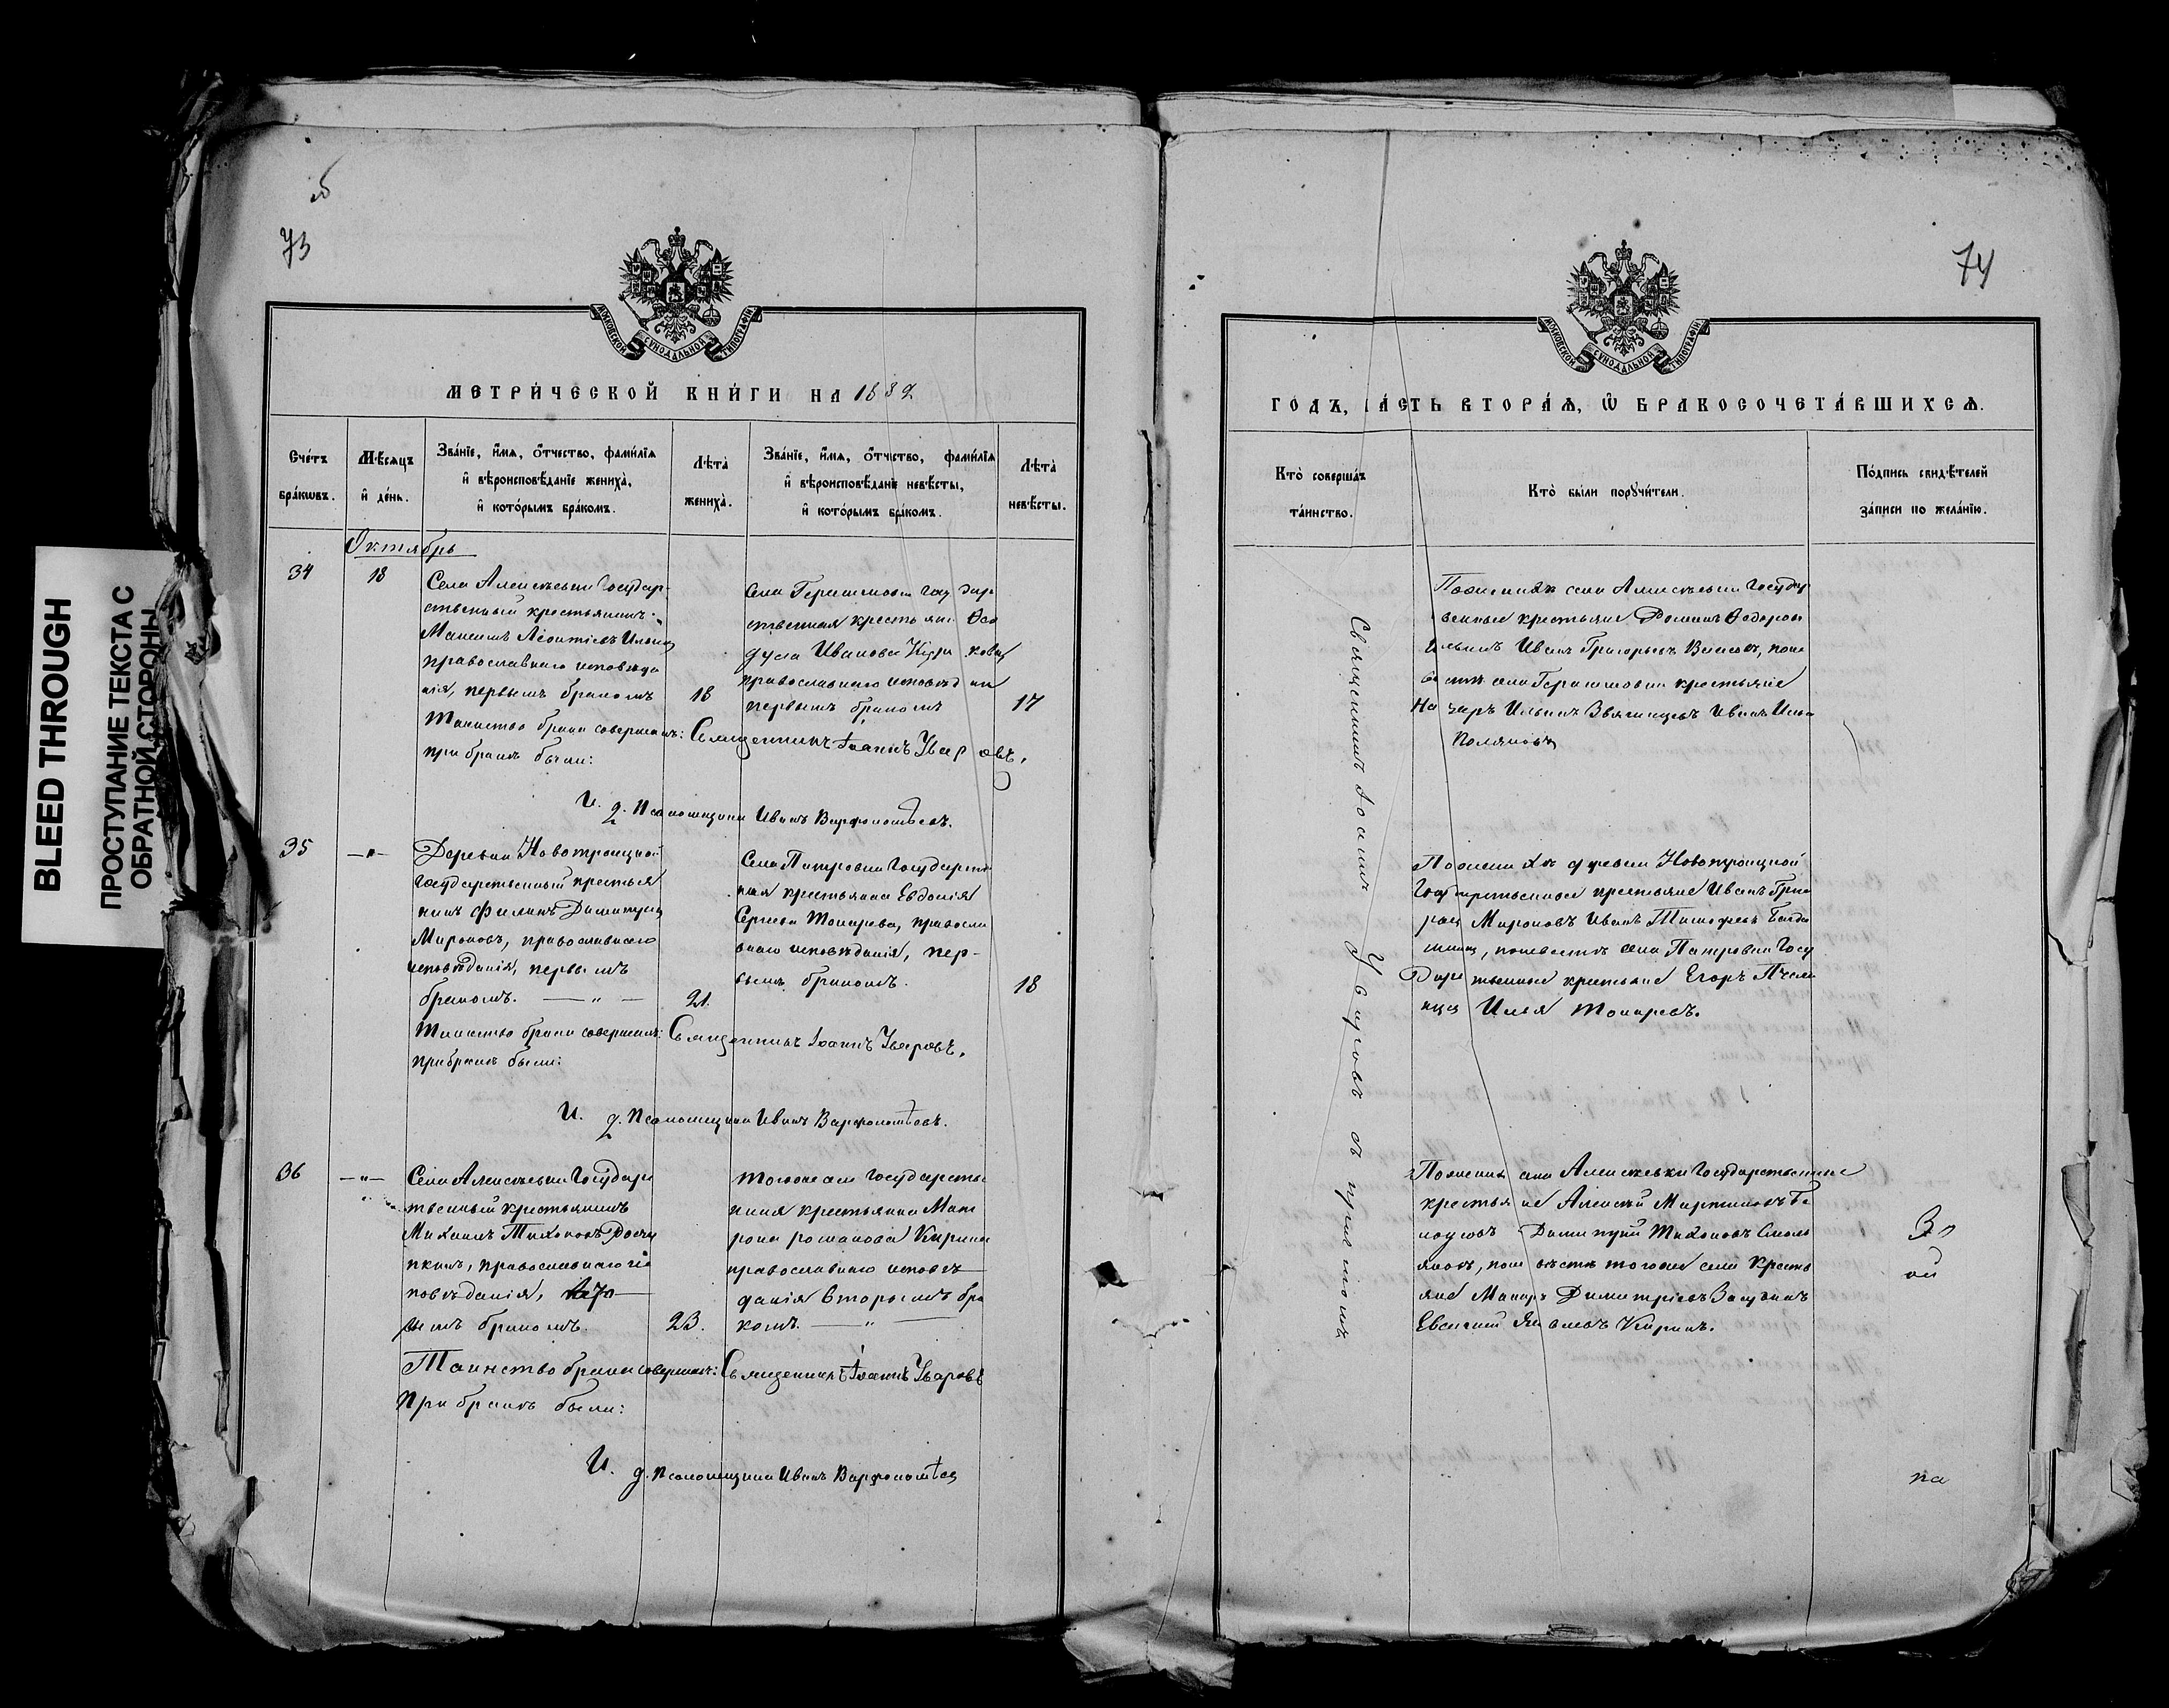 BLEED THROUGH
ПРОСТУПАНИЕ ТЕКСТА С
ОБРАТНОЙ СТОРОНЫ
73
МОСКОВСКОЙ СѴНОДАЛЬНОЙ ТИПОГРАФІИ
МЕТРИ́ЧЕСКОЙ КНИ́ГИ НА 1882
Сче́тъ бра́кѡвъ.
Мѣ́сяцъ и҆ де́нь.
Зва́нїе, и҆́мя, ѻ҆́тчество, фами́лїя и҆ вѣроисповѣ́данїе жениха̀, и҆ кото́рымъ бра́комъ.
Лѣта̀ жениха̀.
Зва́нїе, и҆́мя, ѻ҆́тчество, фами́лїя и҆ вѣроисповѣ́данїе невѣ́сты, и҆ кото́рымъ бра́комъ.
Лѣта̀ невѣ́сты.
Октябрь
34
18
Села Алексѣевки Государ
ственный крестьянинъ
Максимъ Леонтіевъ Ильинъ
православнаго исповѣда
нія, первымъ бракомъ
18
села государ
ственная крестьян Ѳео
дула Иванова
православнаго исповѣдан
первымъ бракомъ
17
Таинство брака совершалъ: Священникъ Іоаннъ Уваровъ,
при бракѣ были:
И. д. Псаломщика Иванъ Варфоломѣевъ.
35
— " —
Деревни Новотроицкой
Государственный крестья
нинъ Филипъ Димитріев
Мироновъ, православнаго
исповѣданія, первымъ
бракомъ. — " —
21.
Села Патровки Государств
ная крестьянка Евдокія
Сергеева Токарева, правосла
внаго исповѣданія, пер-
вымъ бракомъ.
18
Таинство брака совершалъ: Священникъ Іоаннъ Уваровъ,
при бракѣ были:
И. д. Псаломщика Иванъ Варфоломѣевъ.
36
— " —
Села Алексѣевки Государс
твенный крестьянинъ
Михаилъ Тихоновъ
православнаго ис
повѣданія,
вымъ бракомъ.
23.
тогоже села Государств
нная крестьянка Мат
рона романова Кирина
православнаго исповѣ
данія вторымъ бра
комъ. — " —
Таинство брака совершалъ: Священникъ Іоаннъ Уваровъ
При бракѣ были:
И. д. Псаломщика Иванъ Варфоломѣев
74
МОСКОВСКОЙ СѴНОДАЛЬНОЙ ТИПОГРАФІИ
ГОДЪ, ЧА́СТЬ ВТОРА́Я, Ѽ БРАКОСОЧЕТА́ВШИХСЯ.
Кто̀ соверша́лъ та́инство.
Кто̀ бы́ли порꙋчи́тели.
По́дпись свидѣ́телей за́писи по жела́нїю.
Священникъ Іоаннъ Уваровъ съ причтомъ
По женихѣ села Алексѣевки Госуда
венные крестьяне Романъ Ѳедоров
Ильинъ Иванъ Григорьевъ Власовъ, поне
вѣстѣ села крестьяне
Назаръ Ильинъ Звягинцевъ Иванъ
Поляковъ
По женихѣ деревни Новотроицкой
Государственные крестьяне Иванъ Григо
Мироновъ Иванъ Тимофеевъ
поневестѣ села Патровки Госу
Дарственные крестьяне Егоръ
Илья Токаревъ.
По женихѣ села Алексѣевки Государственные
крестьяне Алексѣй Мартиновъ Бе
лоусовъ Димитрій Тихоновъ Смоль
яковъ, поневѣстѣ тогоже села Кресть
яне Макаръ Димитріевъ
Евсигній Яковлевъ Киринъ.
За
ой
па